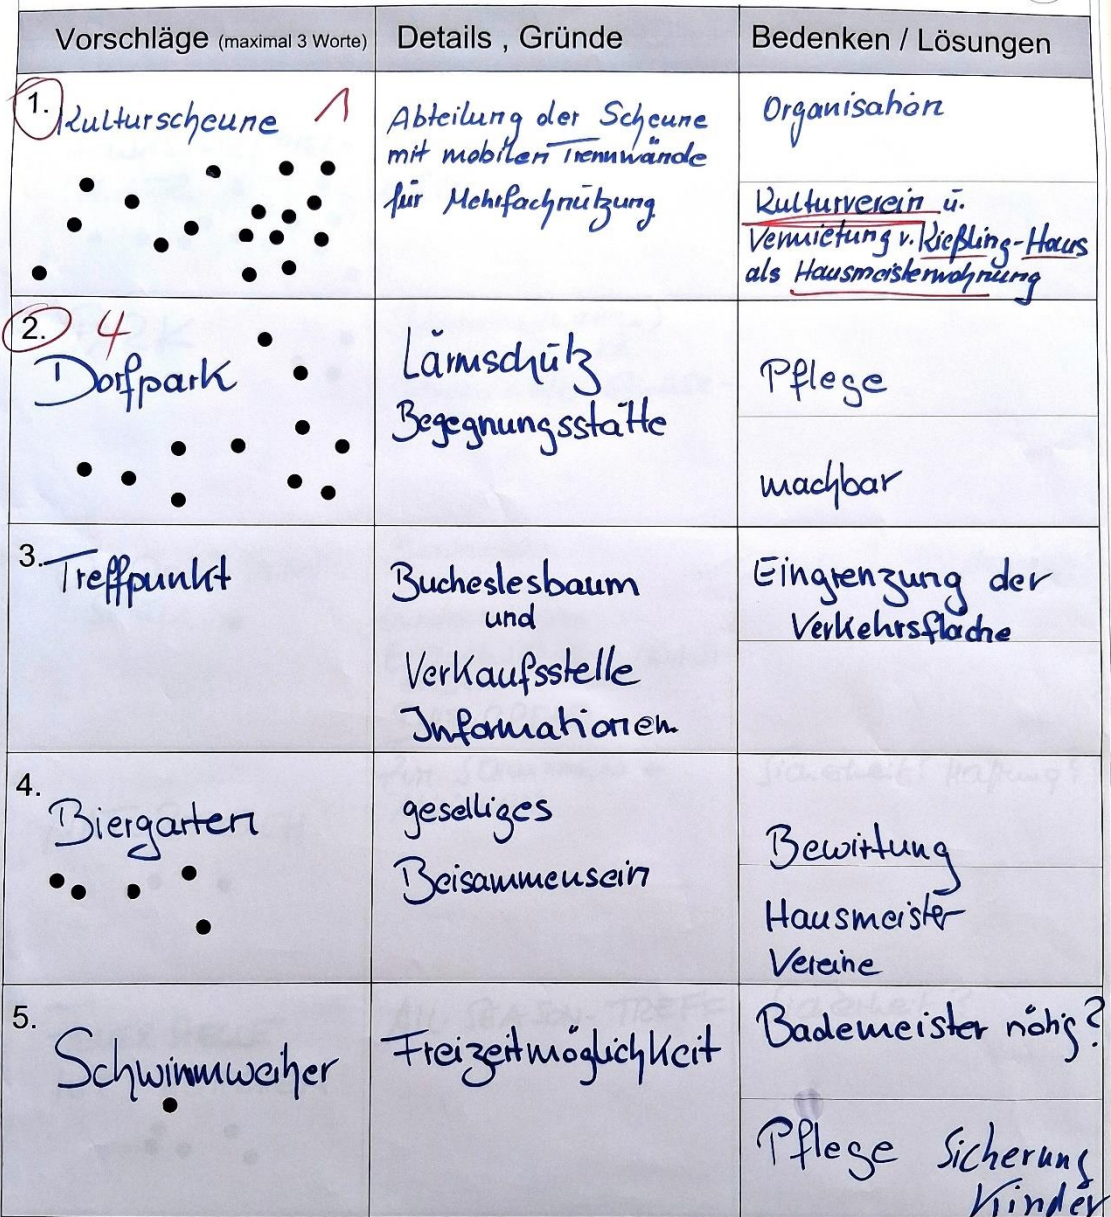 Vorschläge (maximal 3 Worte)
Details , Gründe
Bedenken / Lösungen
1. Kulturscheune 1
Abteilung der Scheune
mit mobilen Trennwände
für Mehrfachnutzung
Organisation
Kulturverein u.
Vermietung v. Kießling-Haus
als Hausmeisterwohnung
2. 4
Dorfpark
Lärmschutz
Begegnungsstätte
Pflege
machbar
3. Treffpunkt
Bucheslesbaum
und
Verkaufsstelle
Informationen
Eingrenzung der
Verkehrsfläche
4.
Biergarten
geselliges
Beisammensein
Bewirtung
Hausmeister
Vereine
5.
Schwimmweiher
Freizeitmöglichkeit
Bademeister nötig?
Pflege Sicherung
Kinder